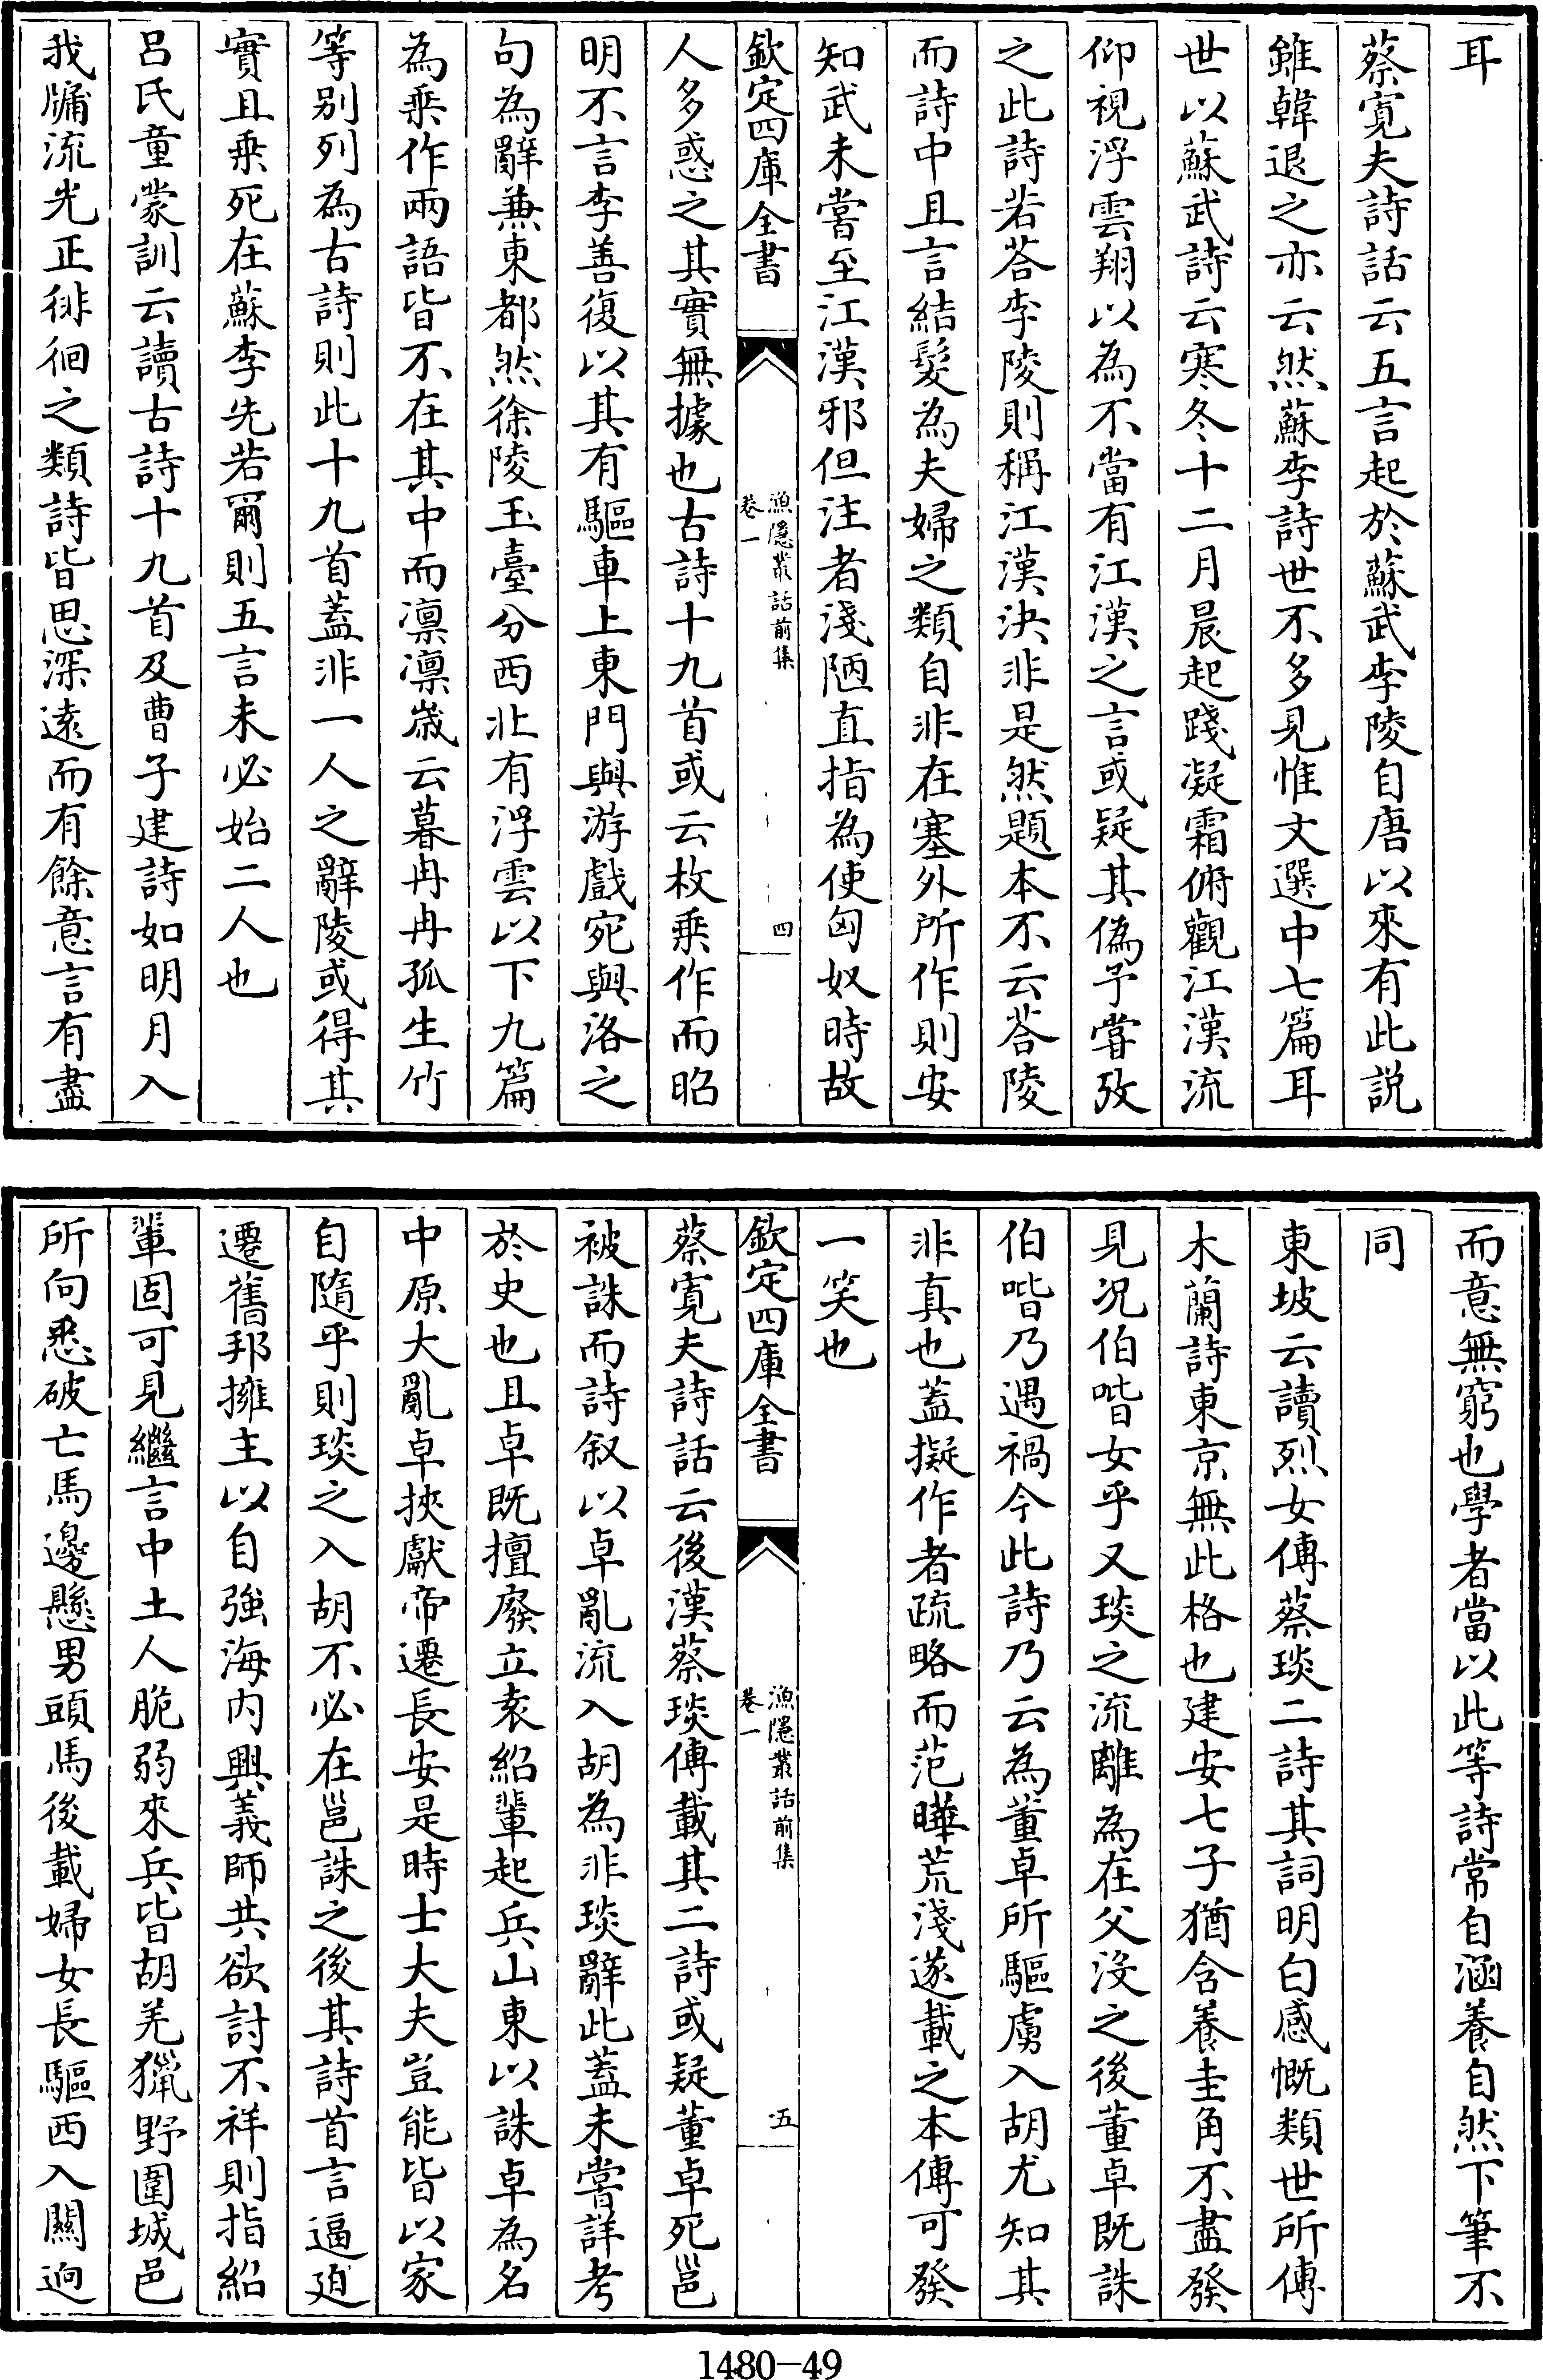 耳
蔡寛夫詩話云五言起於蘇武李陵自唐以來有此説
雖韓退之亦云然蘇李詩世不多見惟文選中七篇耳
世以蘇武詩云寒冬十二月晨起踐凝霜俯觀江漢流
仰視浮雲翔以為不當有江漢之言或疑其偽予嘗攷
之此詩若荅李陵則稱江漢決非是然題本不云荅陵
而詩中且言結髮為夫婦之類自非在塞外所作則安
知武未嘗至江漢邪但注者淺陋直指為使匈奴時故
欽定四庫全書
漁隱叢話前集
卷一
四
人多惑之其實無據也古詩十九首或云枚乗作而昭
明不言李善復以其有驅車上東門與游戲宛與洛之
句為辭兼東都然徐陵玉臺分西北有浮雲以下九篇
為乗作兩語皆不在其中而凛凛歲云暮冉冉孤生竹
等别列為古詩則此十九首蓋非一人之辭陵或得其
實且乗死在蘇李先若爾則五言未必始二人也
吕氏童蒙訓云讀古詩十九首及曹子建詩如明月入
我牖流光正徘徊之類詩皆思深逺而有餘意言有盡
而意無窮也學者當以此等詩常自涵養自然下筆不
同
東坡云讀烈女傳蔡琰二詩其詞明白感慨類世所傳
木蘭詩東京無此格也建安七子猶含養圭角不盡發
見况伯喈女乎又琰之流離為在父没之後董卓既誅
伯喈乃遇禍今此詩乃云為董卓所驅虜入胡尤知其
非真也蓋擬作者疏略而范曄荒淺遂載之本傳可發
一笑也
欽定四庫全書
漁隱叢話前集
卷一
五
蔡寛夫詩話云後漢蔡琰傳載其二詩或疑董卓死邕
被誅而詩叙以卓亂流入胡為非琰辭此蓋未嘗詳考
於史也且卓既擅廢立袁紹輩起兵山東以誅卓為名
中原大亂卓挾獻帝遷長安是時士大夫豈能皆以家
自隨乎則琰之入胡不必在邕誅之後其詩首言逼廹
遷舊邦擁主以自強海内興義師共欲討不祥則指紹
輩固可見繼言中土人脆弱來兵皆胡羌獵野圍城邑
所向悉破亡馬邊懸男頭馬後載婦女長驅西入關逈
1480-49